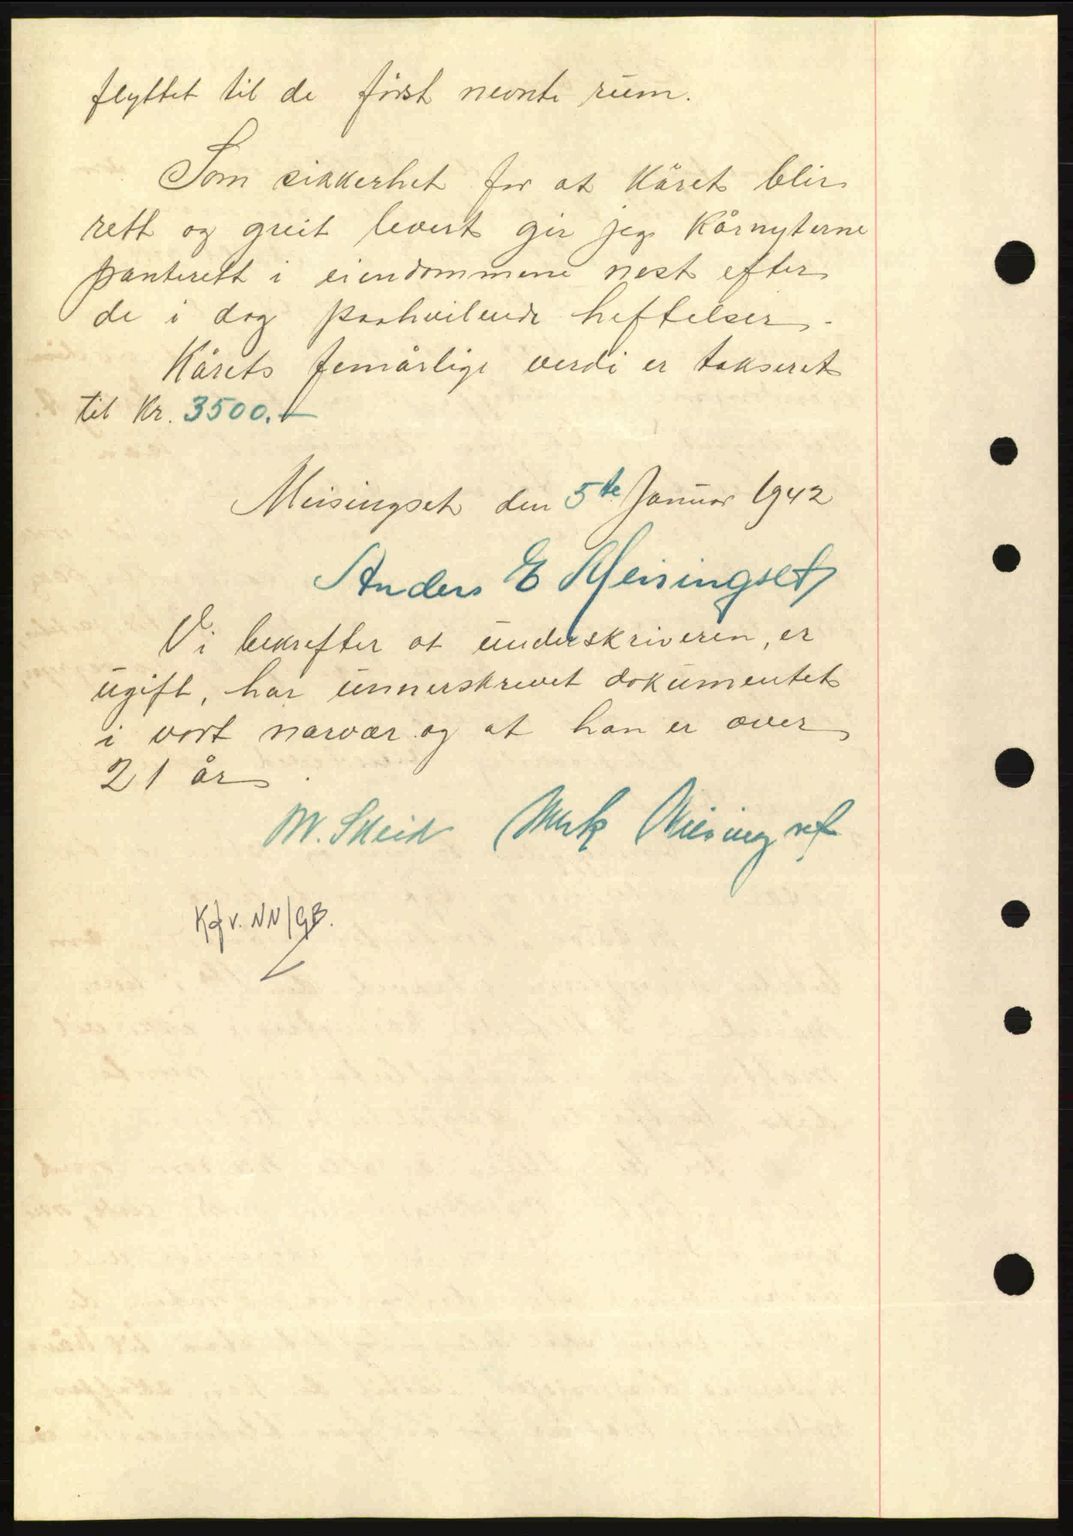 flyttet til de först nevnte rüm.
Som sikkerhet for at kåret blir
rett og greit levert gir jeg kårnyterne
panterett i eiendommene nest efter
de i dag paahvilende heftelser.
Kårets femårlige verdi er taksert
til kr. 3500.-
Meisingset den 5te Janüar 1942
Anders E Meisingset
Vi bekrefter at ünderskriveren, er
ügift, har ünnerskrevet dokümentet
i vort nærvær og at han er over
21 år
M. Skeid Meisingset
Kfv. NN/GB.